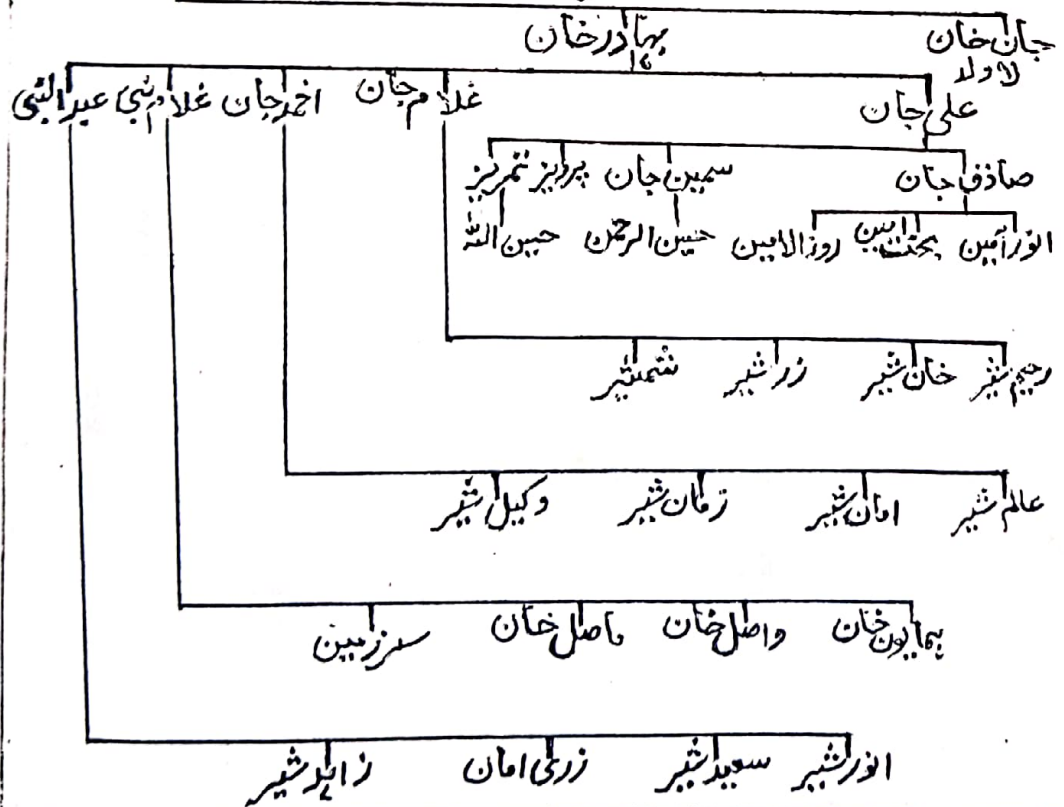 جان خان بہادر خان
لاولد
علی جان غلام جان احمد جان غلام نبی عبدالنبی
صادق جان سمین جان پرویز تمریز
انور امین بخت امین روزالامین حسین الرحمن حبیب اللہ
رحیم شیر خان شیر زر شیر شمشیر
عالم شیر امان شیر زمان شیر وکیل شیر
ہمایون خان واصل خان فاضل خان سرزمین
انور شیر سعید شیر زری امان زاہد شیر